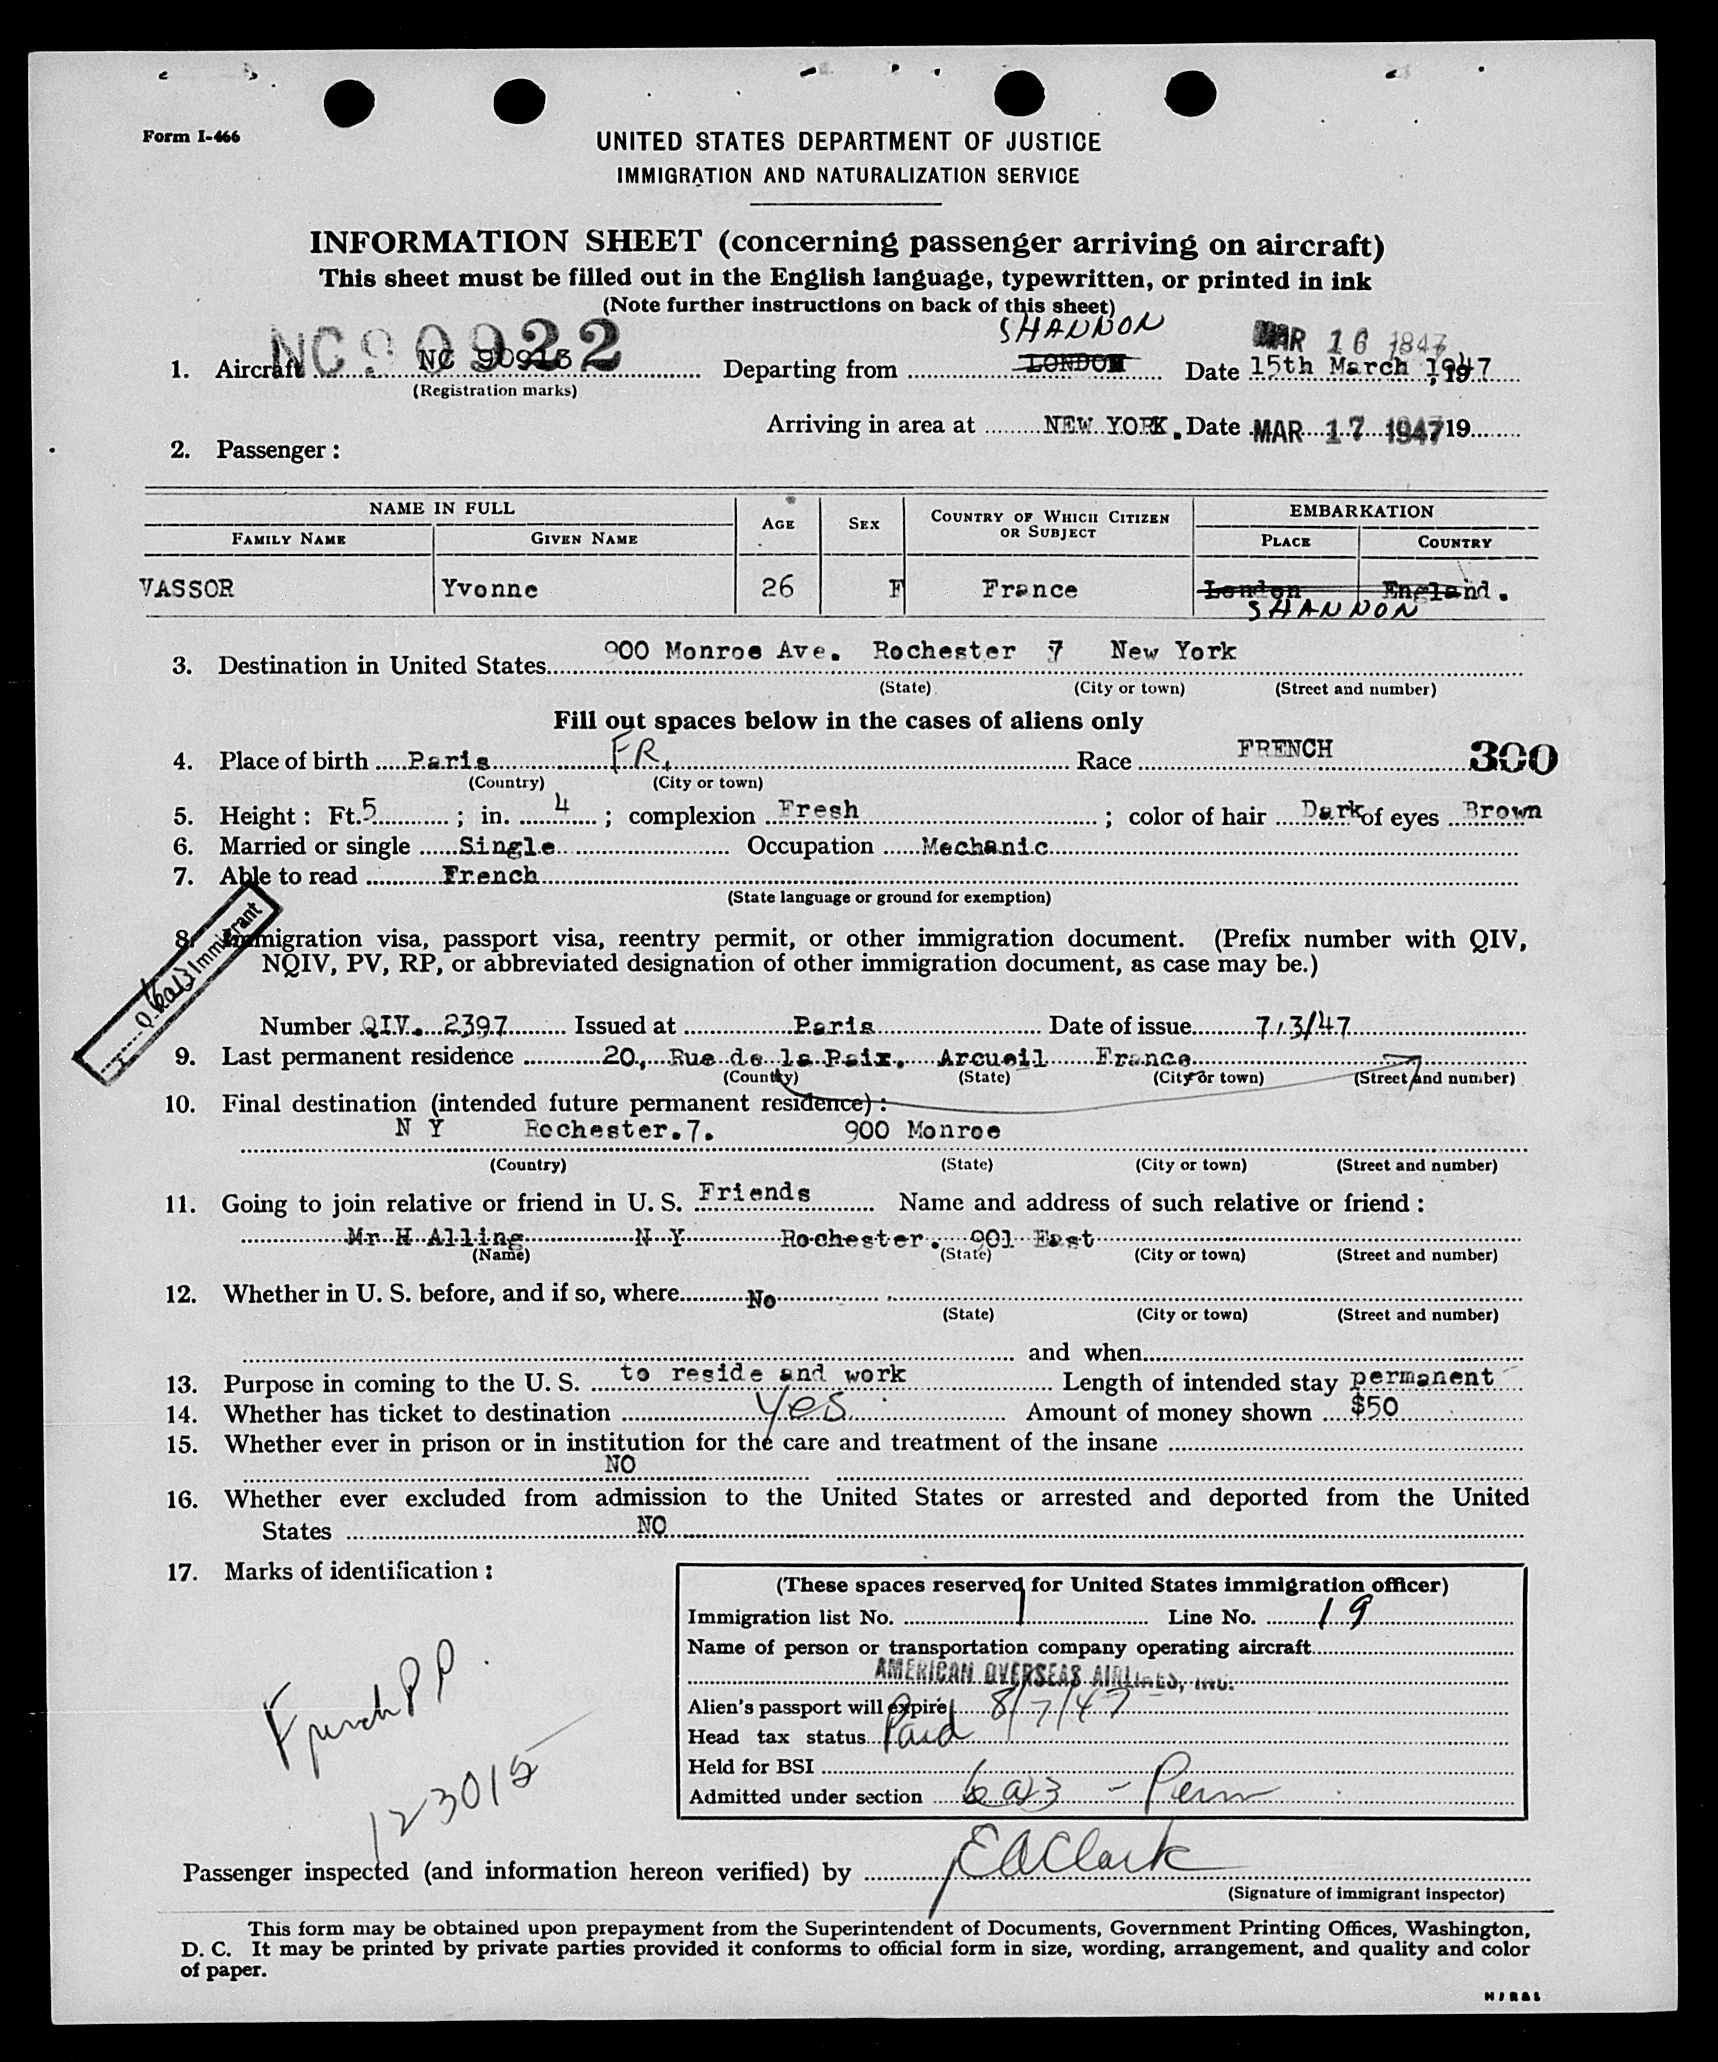 Form I-466
UNITED STATES DEPARTMENT OF JUSTICE
IMMIGRATION AND NATURALIZATION SERVICE
INFORMATION SHEET (concerning passenger arriving on aircraft)
This sheet must be filled out in the English language, typewritten, or printed in ink
(Note further instructions on back of this sheet)
SHANNON MAR 16 1947
1. Aircraft NC90922 Departing from LONDON Date 15th March 1947
(Registration marks)
Arriving in area at NEW YORK. Date MAR 17 1947 19
2. Passenger:
NAME IN FULL AGE SEX COUNTRY OF WHICH CITIZEN OR SUBJECT EMBARKATION
FAMILY NAME GIVEN NAME PLACE COUNTRY
VASSOR Yvonne 26 F France London England.
SHANNON
3. Destination in United States 900 Monroe Ave. Rochester 7 New York
(State) (City or town) (Street and number)
Fill out spaces below in the cases of aliens only
4. Place of birth Paris FR. Race FRENCH 300
(Country) (City or town)
5. Height: Ft. 5; in. 4; complexion Fresh; color of hair Dark of eyes Brown
6. Married or single Single Occupation Mechanic
7. Able to read French
(State language or ground for exemption)
8. Immigration visa, passport visa, reentry permit, or other immigration document. (Prefix number with QIV,
NQIV, PV, RP, or abbreviated designation of other immigration document, as case may be.)
Q 6a3 Immigrant
Number QIV. 2397 Issued at Paris Date of issue 7/3/47
9. Last permanent residence 20, Rue de la Paix. Arcueil France
(Country) (State) (City or town) (Street and number)
10. Final destination (intended future permanent residence):
N Y Rochester.7. 900 Monroe
(Country) (State) (City or town) (Street and number)
11. Going to join relative or friend in U. S. Friends Name and address of such relative or friend:
Mr H Alling N Y Rochester. 901 East
(Name) (State) (City or town) (Street and number)
12. Whether in U. S. before, and if so, where No
(State) (City or town) (Street and number)
and when
13. Purpose in coming to the U. S. to reside and work Length of intended stay permanent
14. Whether has ticket to destination Yes Amount of money shown $50
15. Whether ever in prison or in institution for the care and treatment of the insane
NO
16. Whether ever excluded from admission to the United States or arrested and deported from the United
States NO
17. Marks of identification:
(These spaces reserved for United States immigration officer)
Immigration list No. 1 Line No. 19
Name of person or transportation company operating aircraft
AMERICAN OVERSEAS AIRLINES, INC.
Alien's passport will expire 8/7/47
Head tax status Paid
Held for BSI
Admitted under section 6a3 - Perm
French PP.
123015
Passenger inspected (and information hereon verified) by EAClark
(Signature of immigrant inspector)
This form may be obtained upon prepayment from the Superintendent of Documents, Government Printing Offices, Washington,
D. C. It may be printed by private parties provided it conforms to official form in size, wording, arrangement, and quality and color
of paper.